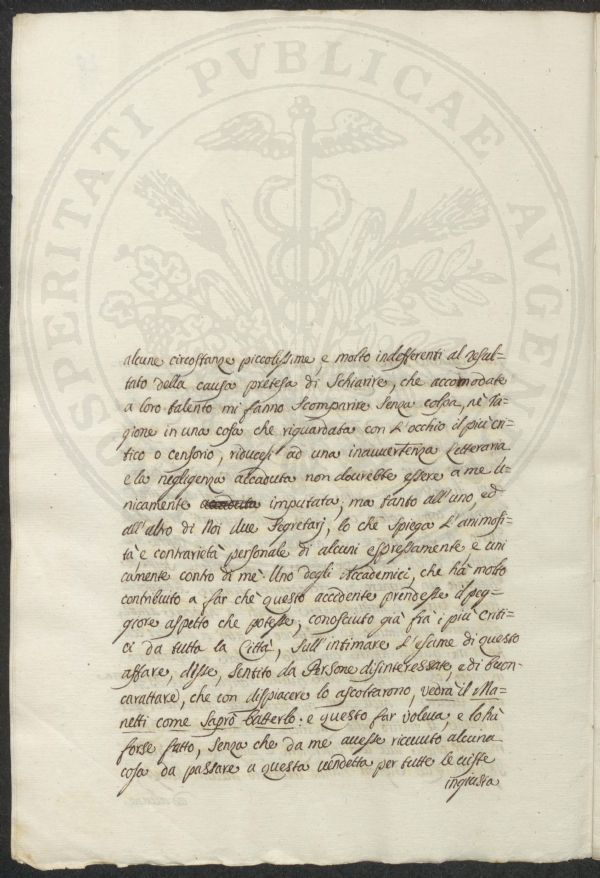 PROSPERITATI PVBLICAE AVGEN
alcune circostanze piccolissime, e molto indifferenti al resul=
tato della causa pretesa di Schiarire, che accomodate
a loro talento mi fanno Scomparire Senza colpa, nè ra=
gione in una cosa che riguardata con l'occhio il più cri=
tico o censorio, riducesi ad una inavvertenza Letteraria
e la negligenza accaduta non dovrebbe essere a me u=
nicamente imputata; ma tanto all'uno, ed
all'altro di Noi due Segretarj, lo che spiega l'animosi=
tà e contrarietà personale di alcuni espressamente e uni
camente contro di mè. Uno degli Accademici, che hà molto
contribuito a far chè questo accidente prendesse il peg=
giore aspetto che potesse, conosciuto già frà i più criti=
ci da tutta la Città, Sull'intimare l'esame di questo
affare, disse, Sentito da Persone disinteressate, e di buon
carattare, che con dispiacere lo ascoltarono, vedrà il Ma=
netti come Saprò batterlo: e questo far voleva, e lo hà
forse fatto, Senza che da me avesse ricevuto alcuna
cosa da passare a questa vendetta per tutte le viste
ingiusta